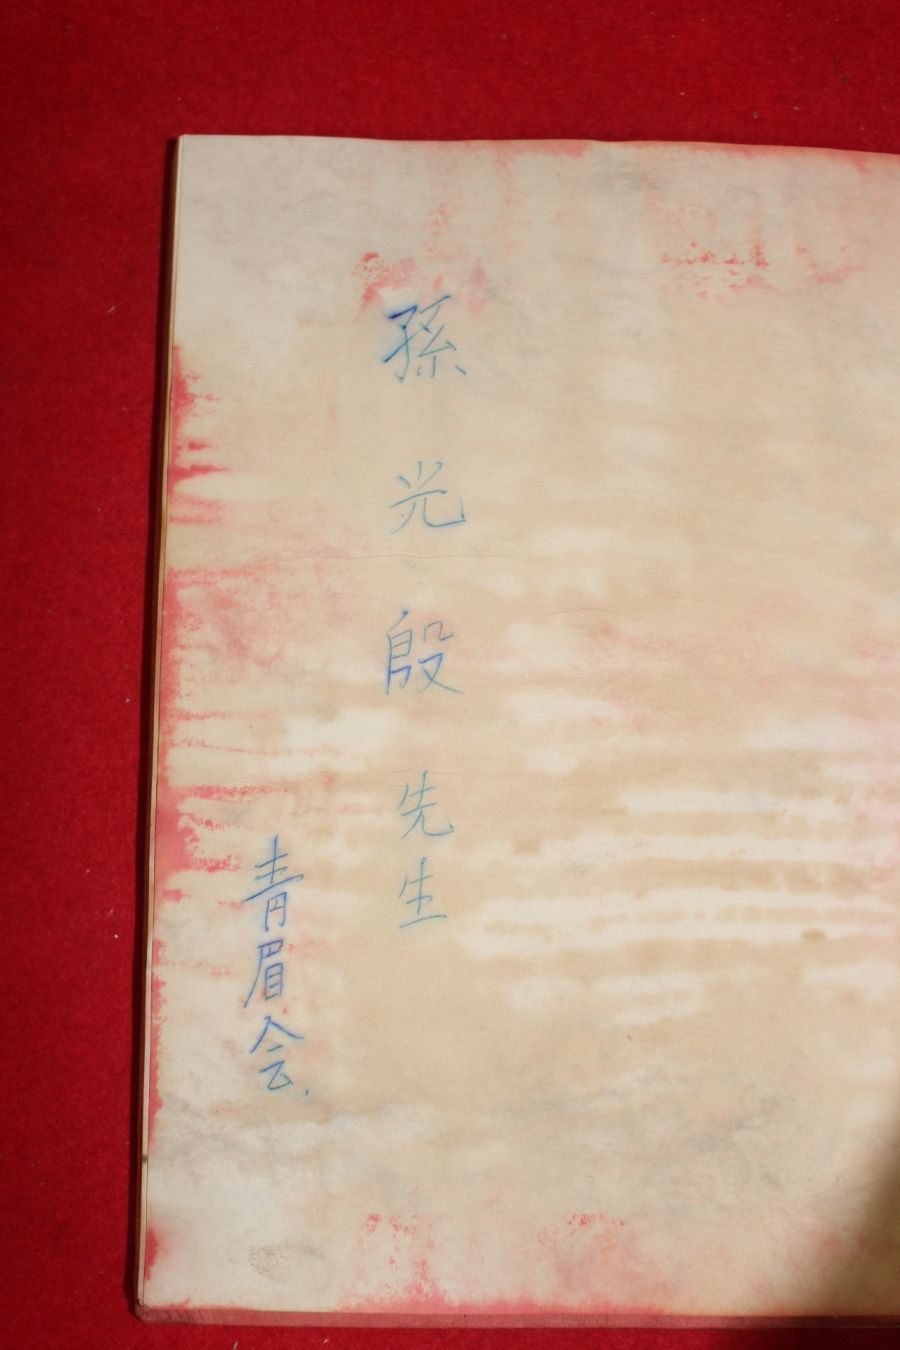 孫光殷先生
青眉会.